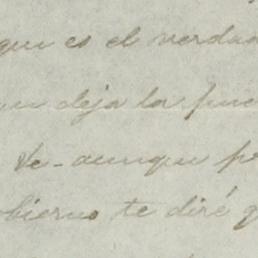 que es el verdad
deja la
te - aunque p
obierno te diré q